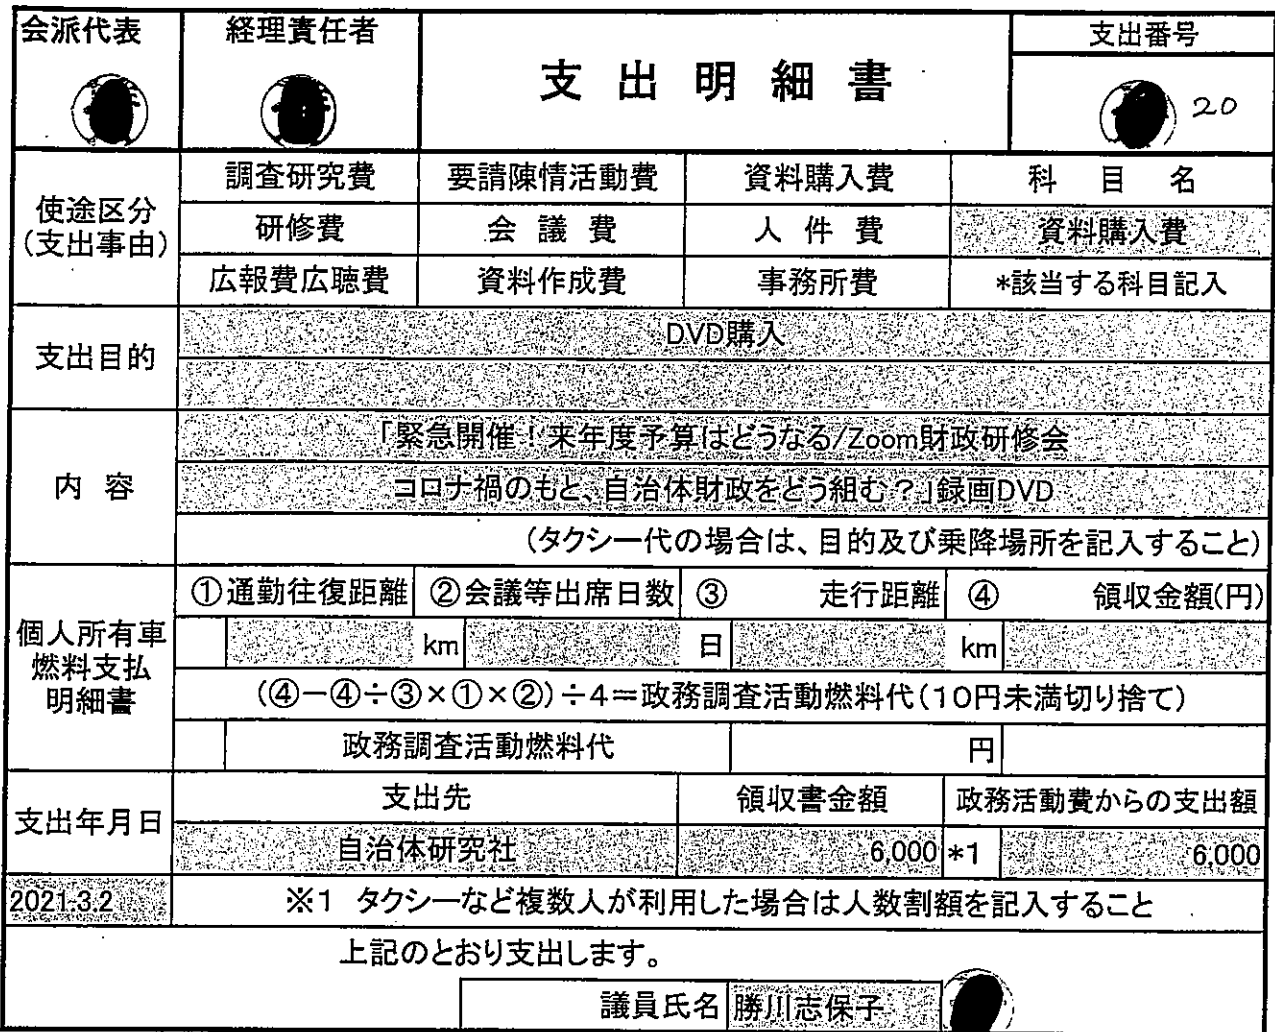 会派代表
経理責任者
支出明細書
支出番号
20
使途区分
(支出事由)
調査研究費 要請陳情活動費 資料購入費 科目名
研修費 会議費 人件費 資料購入費
広報費広聴費 資料作成費 事務所費 *該当する科目記入
支出目的
DVD購入
内容
「緊急開催!来年度予算はどうなる/Zoom財政研修会
コロナ禍のもと、自治体財政をどう組む?」録画DVD
(タクシー代の場合は、目的及び乗降場所を記入すること)
個人所有車
燃料支払
明細書
①通勤往復距離 ②会議等出席日数 ③ 走行距離 ④ 領収金額(円)
km 日 km
(④-④÷③×①×②)÷4=政務調査活動燃料代(10円未満切り捨て)
政務調査活動燃料代 円
支出年月日
支出先 領収書金額 政務活動費からの支出額
自治体研究社 6,000 *1 6,000
2021.3.2 ※1 タクシーなど複数人が利用した場合は人数割額を記入すること
上記のとおり支出します。
議員氏名 勝川志保子